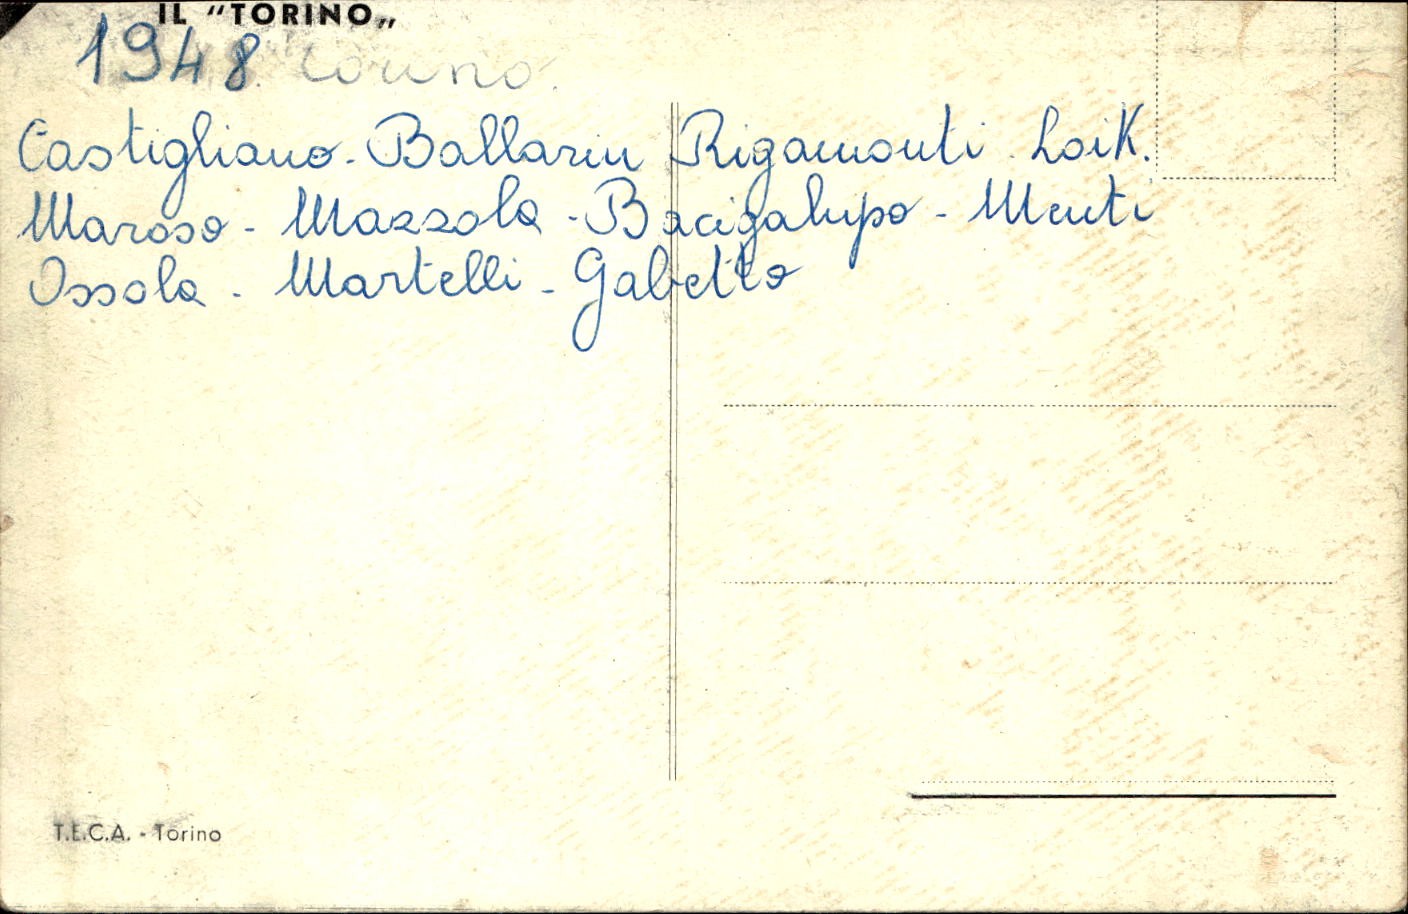 IL “TORINO„
1948. Torino.
Castigliano - Ballarin Rigamonti Loik.
Maroso - Mazzola - Bacigalupo - Menti
Ossola - Martelli - Gabetto
T.E.C.A. - Torino